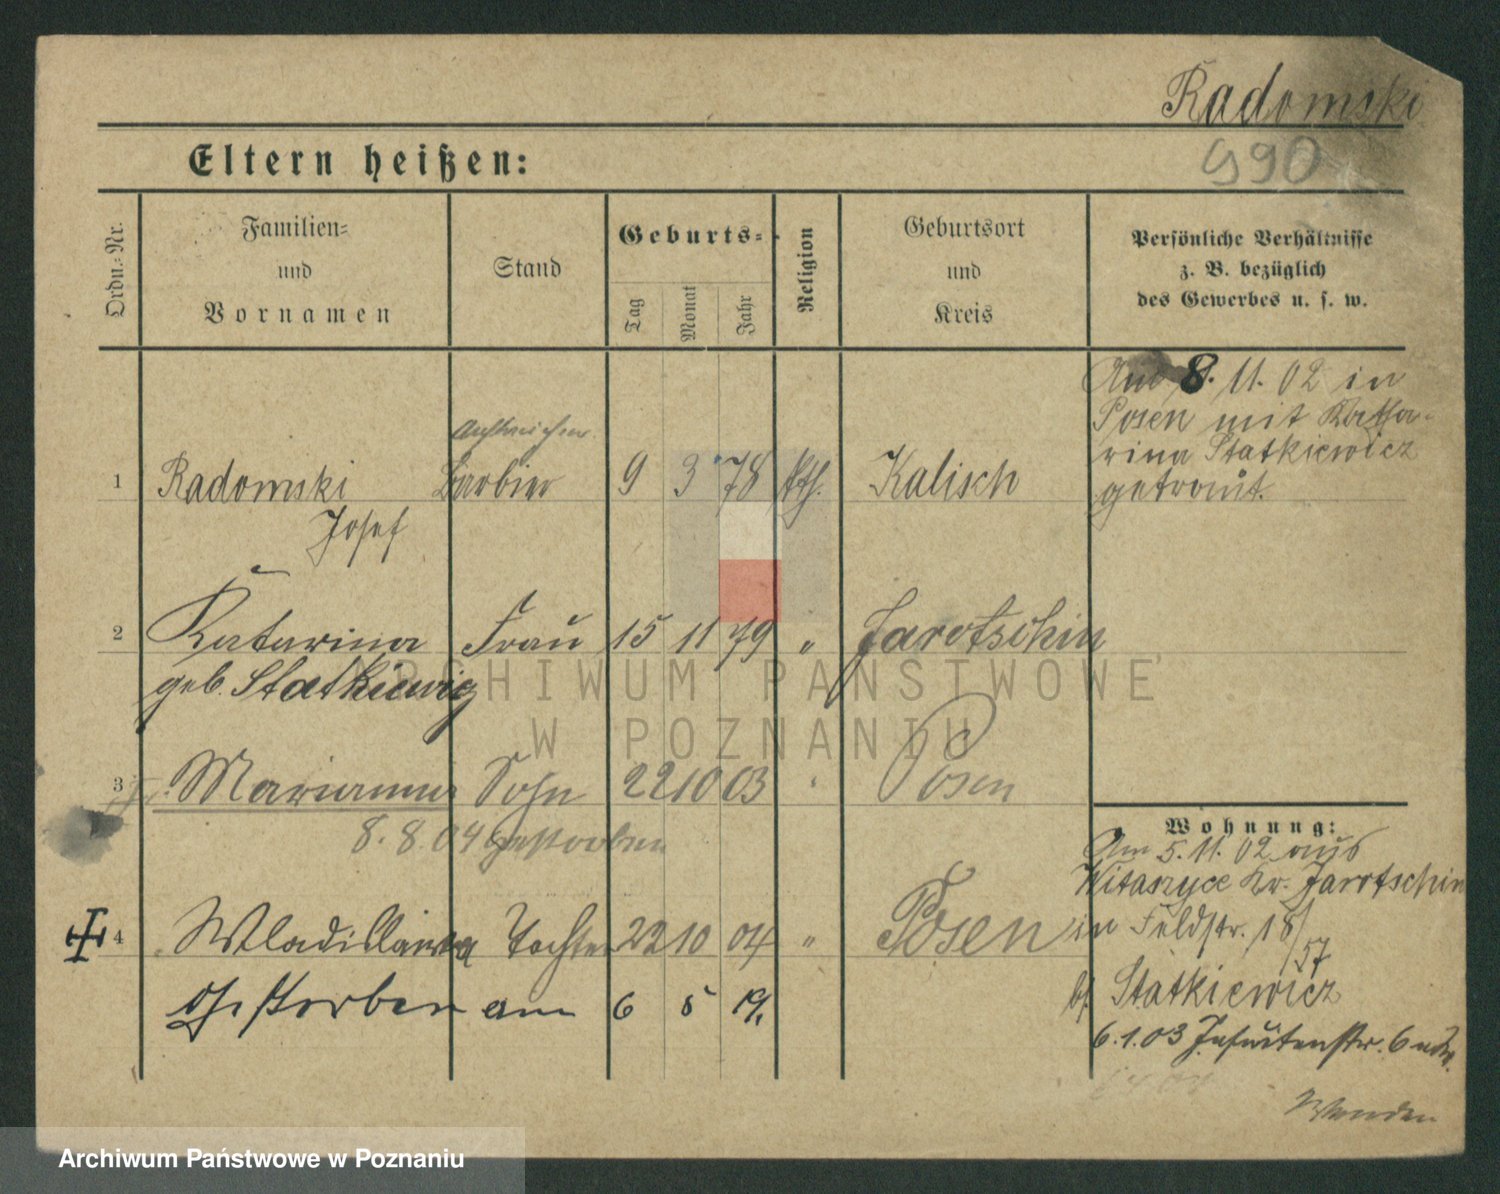 Radomski
990
Eltern heißen:
Ordn.-Nr.
Familien-
und
Vornamen
Stand
Geburts-
Tag
Monat
Jahr
Religion
Geburtsort
und
Kreis
Persönliche Verhältnisse
z. B. bezüglich
des Gewerbes u. s. w.
Am 8. 11. 02 in
Posen mit Katha-
rina Statkiewicz
getraut.
1 Radomski Barbier 9 3 78 kth. Kalisch
Josef
2 Katarina Frau 15 11 79 " Jarotschin
geb. Statkiewicz
ARCHIWUM PAŃSTWOWE
W POZNANIU
3 Marianna Sohn 22 10 03 " Posen
8. 8. 04 gestorben
Wohnung:
Am 5. 11. 02 aus
Witaszyce Kr. Jarotschin
in Feldstr. 18/57
4 Wladislawa Tochter 22 10 04 " Posen
bf. Statkiewicz
gestorben am 6 5 19.
6. 1. 03 Jesuitenstr. 6
Wenden
Archiwum Państwowe w Poznaniu